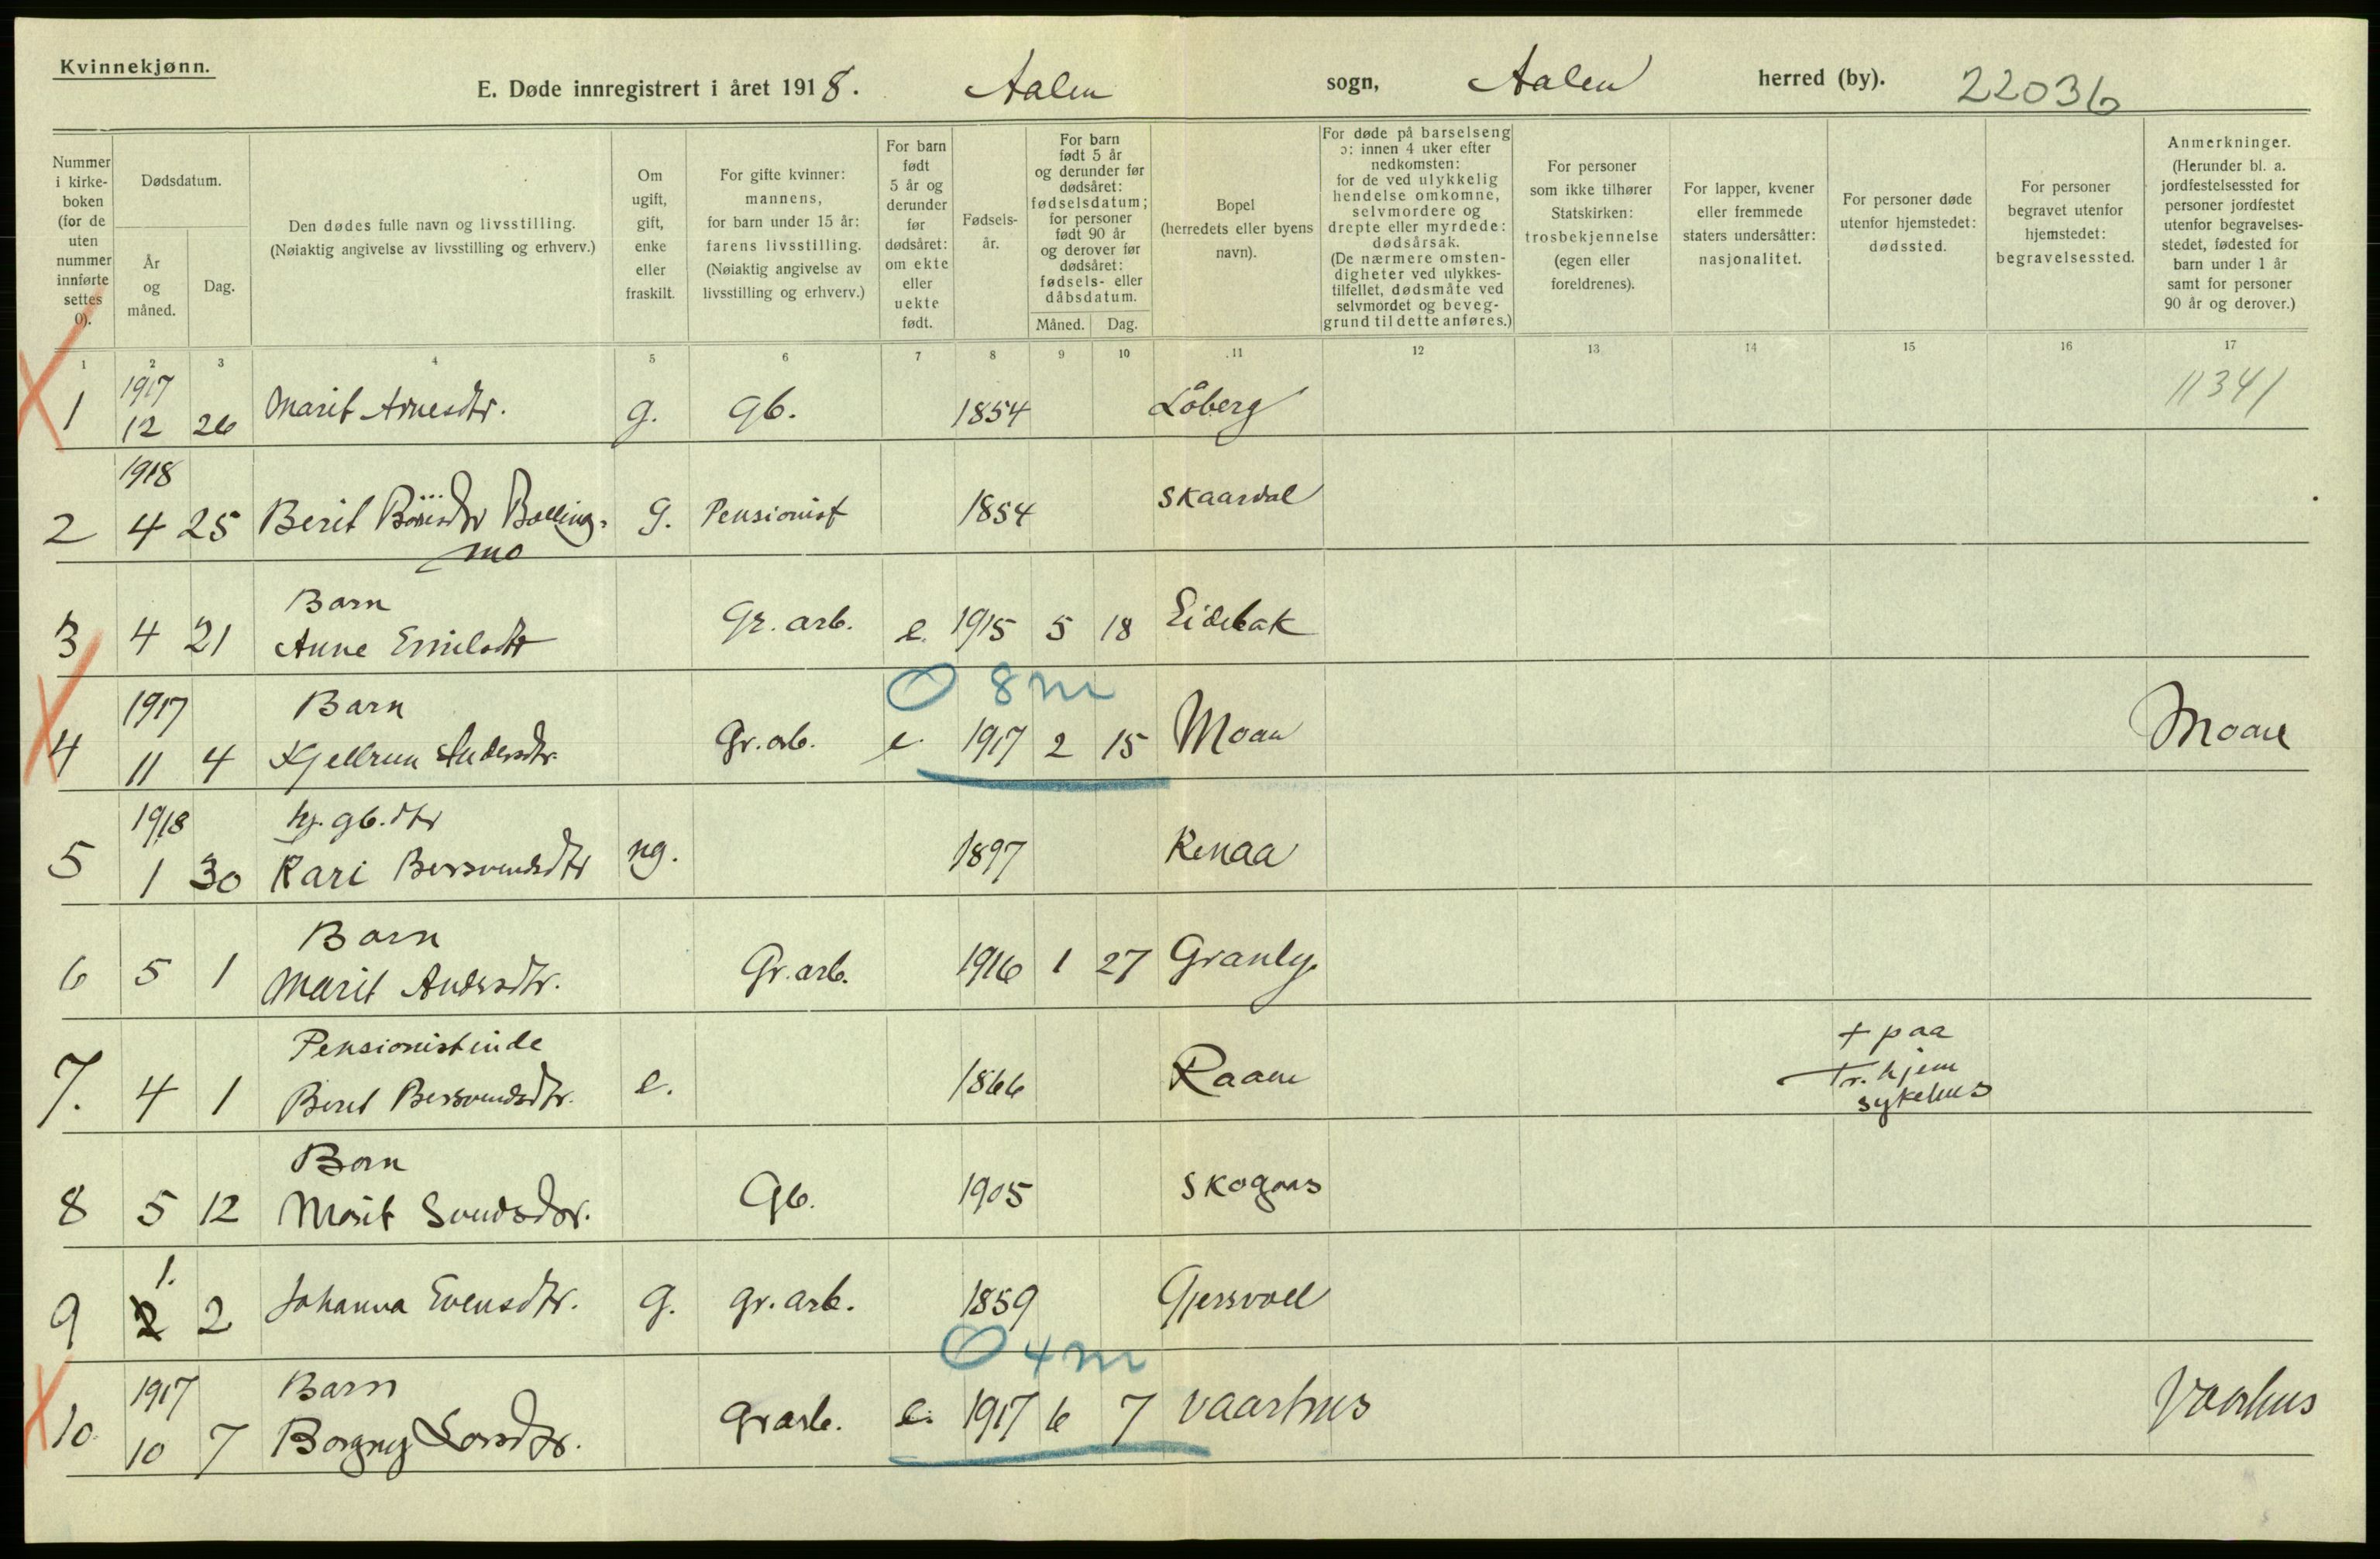 Kvinnekjønn.
E. Døde innregistrert i året 1918. Aalen sogn, Aalen herred (by). 22036
Nummer i kirke-boken (for de uten nummer innførte settes 0).
Dødsdatum.
År og måned.
Dag.
Den dødes fulle navn og livsstilling.
(Nøiaktig angivelse av livsstilling og erhverv.)
Om ugift, gift, enke eller fraskilt.
For gifte kvinner: mannens, for barn under 15 år: farens livsstilling. (Nøiaktig angivelse av livsstilling og erhverv.)
For barn født 5 år og derunder før dødsåret: om ekte eller uekte født.
Fødsels-år.
For barn født 5 år og derunder før dødsåret: fødselsdatum; for personer født 90 år og derover før dødsåret: fødsels- eller dåbsdatum.
Måned. Dag.
Bopel (herredets eller byens navn).
For døde på barselseng ɔ: innen 4 uker efter nedkomsten: for de ved ulykkelig hendelse omkomne, selvmordere og drepte eller myrdede: dødsårsak. (De nærmere omsten-digheter ved ulykkes-tilfellet, dødsmåte ved selvmordet og beveg-grund til dette anføres.)
For personer som ikke tilhører Statskirken: trosbekjennelse (egen eller foreldrenes).
For lapper, kvener eller fremmede staters undersåtter: nasjonalitet.
For personer døde utenfor hjemstedet: dødssted.
For personer begravet utenfor hjemstedet: begravelsessted.
Anmerkninger. (Herunder bl. a. jordfestelsessted for personer jordfestet utenfor begravelses-stedet, fødested for barn under 1 år samt for personer 90 år og derover.)
1 2 3 4 5 6 7 8 9 10 11 12 13 14 15 16 17
1917
1 12 26 Marit Arnesdtr. g. gb. 1854 Låberg 11341
1918
2 4 25 Berit Bolling- g. Pensionist 1854 Skaardal
mo
Barn
3 4 21 Anne Emilsdtr Gr. arb. e. 1915 5 18 Eidebak
O 8 m
1917 Barn
4 11 4 Kjellrun Andersdtr. Gr. arb. e. 1917 2 15 Moan Moan
1918 hj. gb. dtr
5 1 30 Kari Bersvendsdtr ug. 1897 Renaa
Barn
6 5 1 Marit Andersdtr. Gr. arb. 1916 1 27 Granly
Pensionistinde
7. 4 1 Beret Bersvendsdtr. e. 1866 Raaen + paa
Tr.hjem
sykehus
Barn
8 5 12 Marit Svendsdtr. Gb. 1905 Skogaas
1.
9 2 2 Johanna Evensdtr. g. gr. arb. 1859 Gjersvoll
O 4 m
1917 Barn
10 10 7 Borgny Larsdtr. Gr arb. e. 1917 6 7 Vaarhus Vaarhus